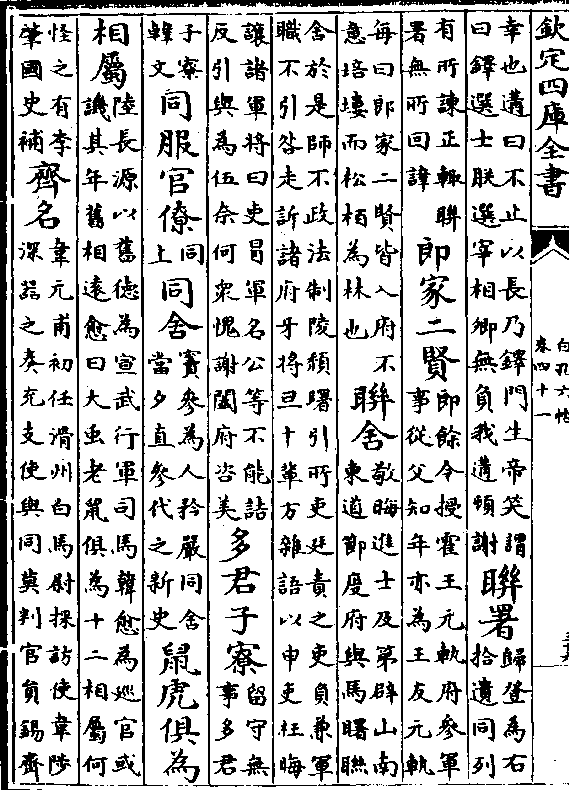 欽定四庫全書
白孔六帖
卷四十一
幸也遘曰不止以長乃鐸門生帝笑謂
曰鐸選士朕選宰相卿無負我遘頓謝
聯署
歸登為右
拾遺同列
有所諫正輙聯
署無所回諱
郎家二賢
郎餘令授霍王元軌府參軍
事從父知年亦為王友元軌
每曰郎家二賢皆入府不
意培塿而松栢為林也
聯舍
敬晦進士及第辟山南
東道節度府與馬曙聯
舍於是師不政法制陵頽曙引所吏廷責之吏負兼軍
職不引咎走訴諸府牙將且十輩方雜語以申吏枉晦
讓諸軍將曰吏冒軍名公等不能詰
反引與為伍奈何衆愧謝闔府咨美
多君子寮
留守無
事多君
子寮
韓文
同服官僚
同
上
同舍
竇參為人矜嚴同舍
當夕直參代之新史
鼠虎俱為
相屬
陸長源以舊德為宣武行軍司馬韓愈為巡官或
譏其年舊相遠愈曰大虫老鼠俱為十二相屬何
怪之有李
肇國史補
齊名
韋元甫初任滑州白馬尉採訪使韋陟
深器之奏充支使與同莫判官負錫齊